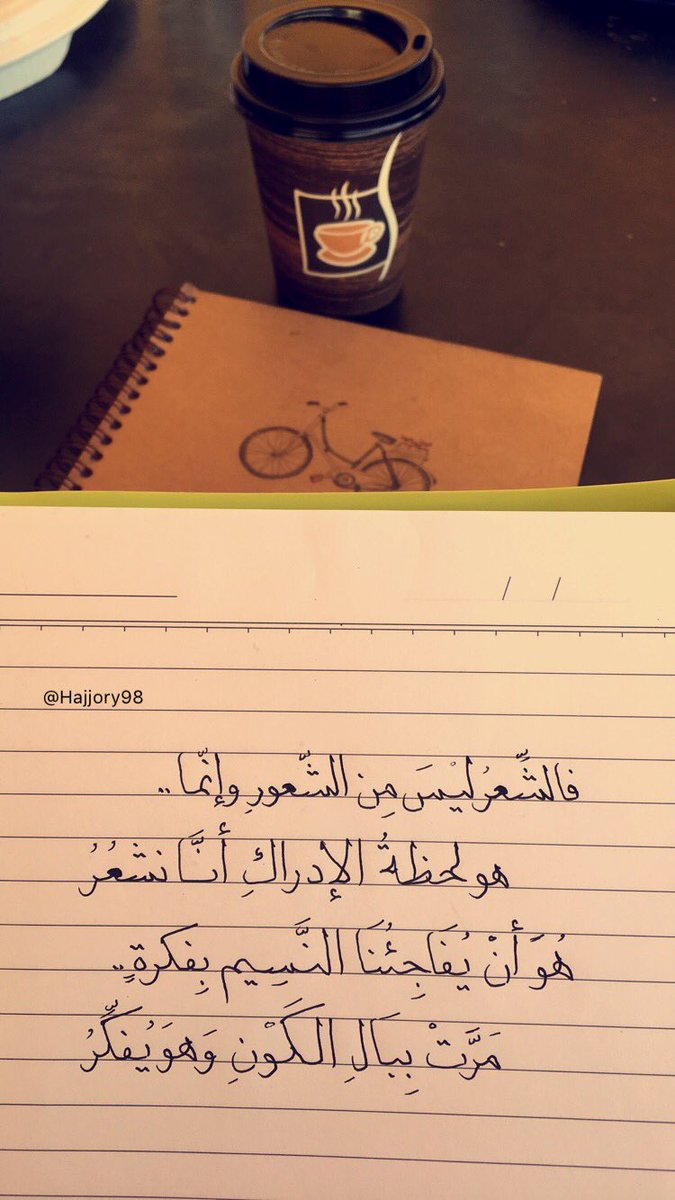 @Hajjory98
فالشِّعرُ ليْسَ مِن الشّعورِ وإنّما..
هو لحظةُ الإدراكِ أنَّنا نشعُرُ
هُوَ أنْ يُفَاجِئُنَا النَّسِيم بِفكرةٍ..
مَرَّتْ بِبَالِ الكَوْنِ وَهوَ يُفكِّرُ